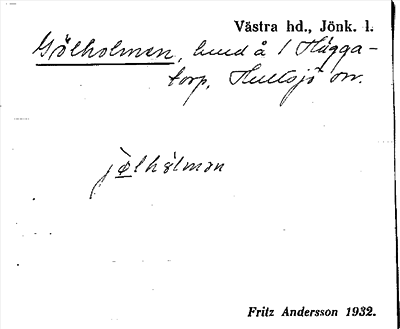 Västra hd., Jönk. l.
Gölholmen, lund å 1 Hägga-
torp, Hultsjö sn.
jölhòlmən
Fritz Andersson 1932.